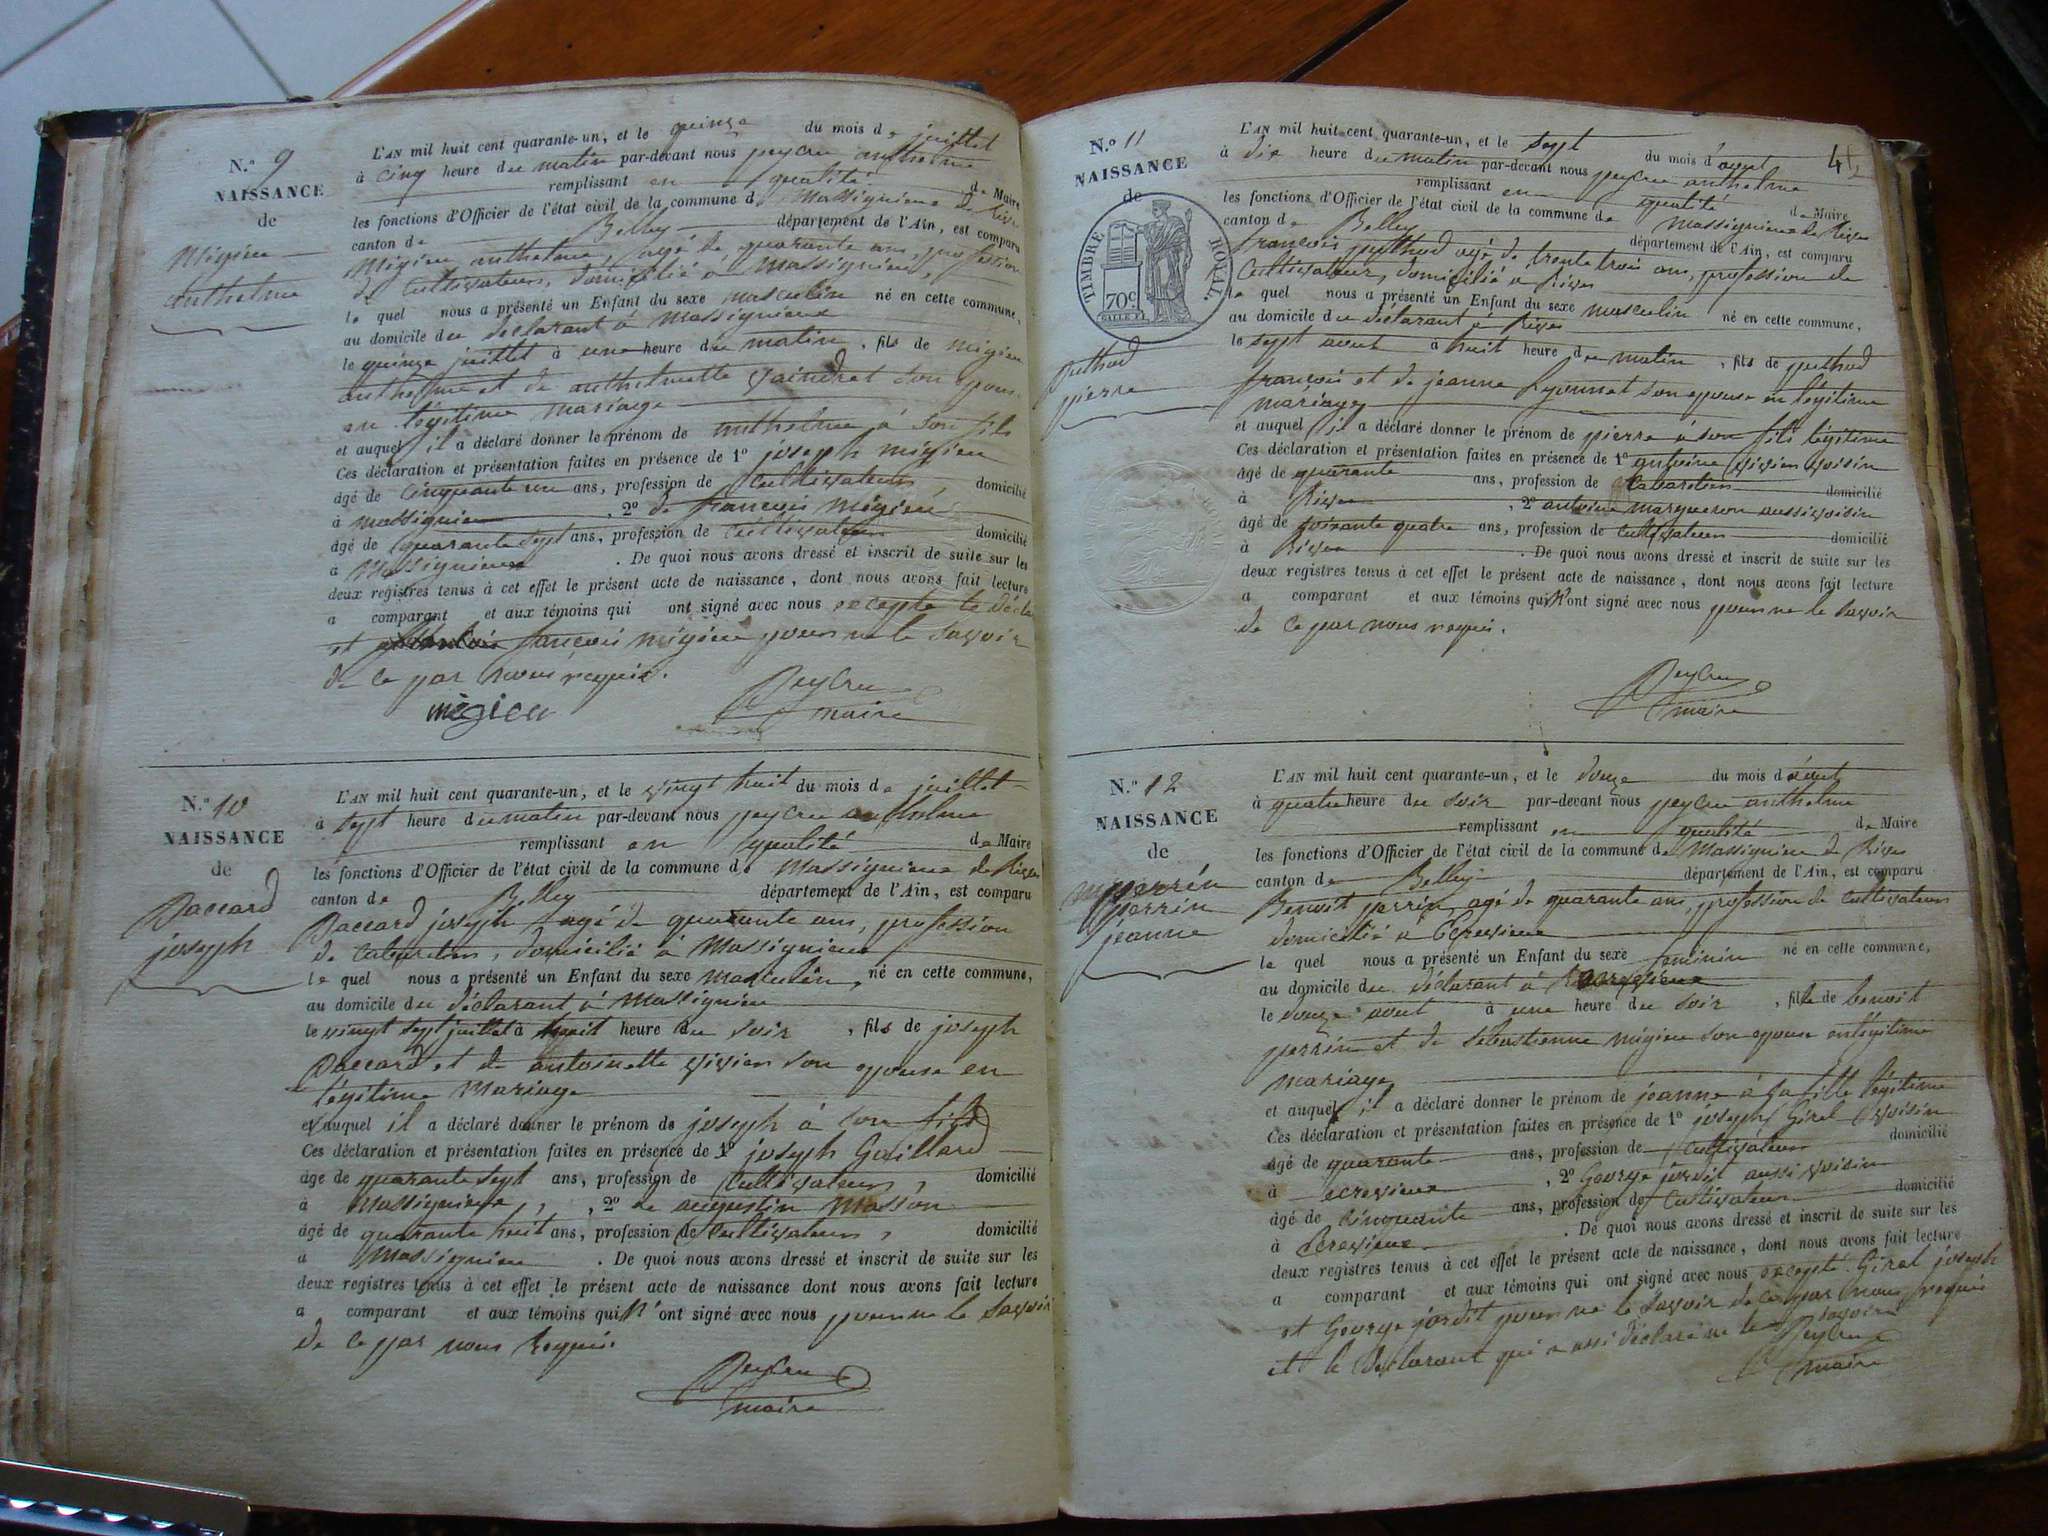 N.º 9
NAISSANCE
de
Migieu
anthelme
L'AN mil huit cent quarante-un, et le quinze du mois de juillet
à cinq heure du matin par-devant nous peycru anthelme
remplissant en qualité de Maire
les fonctions d'Officier de l'état civil de la commune de Massignieu de Rives
canton de Belley département de l'Ain, est comparu
Migieu anthelme, agé de quarante ans, profession
de Cultivateur, domicilié à Massignieu,
le quel nous a présenté un Enfant du sexe masculin né en cette commune,
au domicile du déclarant à Massignieux
le quinze juillet à une heure du matin, fils de migieu
anthelme et de anthelmette son epouse
en légitime mariage
et auquel il a déclaré donner le prénom de anthelme à son fils
Ces déclaration et présentation faites en présence de 1º joseph migieu
âgé de cinquante un ans, profession de Cultivateur, domicilié
à massignieu, 2º de francois migieu
âgé de quarante sept ans, profession de cultivateur domicilié
à Massignieux. De quoi nous avons dressé et inscrit de suite sur les
deux registres tenus à cet effet le présent acte de naissance, dont nous avons fait lecture
a comparant et aux témoins qui ont signé avec nous excepté le décla
et francois migieu pour ne le savoir
de ce par nous requis.
migieu
Peycru
maire
N.º 10
NAISSANCE
de
Daccard
joseph
L'AN mil huit cent quarante-un, et le vingt huit du mois de juillet
à sept heure du matin par-devant nous peycru anthelme
remplissant en qualité de Maire
les fonctions d'Officier de l'état civil de la commune de Massignieu de Rives
canton de Belley département de l'Ain, est comparu
Daccard joseph agé de quarante ans, profession
de cabaretier, domicilié à Massignieux
le quel nous a présenté un Enfant du sexe masculin, né en cette commune,
au domicile du déclarant à Massignieu
le vingt sept juillet à huit heure du soir, fils de joseph
Daccard et de antoinette vivier son epouse en
légitime mariage
et auquel il a déclaré donner le prénom de joseph à son fils
Ces déclaration et présentation faites en présence de 1º joseph Gaillard
âgé de quarante sept ans, profession de Cultivateur, domicilié
à Massignieux, 2º de augustin Masson
âgé de quarante huit ans, profession de cultivateur, domicilié
à Massignieu. De quoi nous avons dressé et inscrit de suite sur les
deux registres tenus à cet effet le présent acte de naissance dont nous avons fait lecture
a comparant et aux témoins qui n'ont signé avec nous pour ne le savoir
de ce par nous requis.
Peycru
maire
4
N.º 11
NAISSANCE
de
TIMBRE ROYAL.
70c
puthod
pierre
L'AN mil huit cent quarante-un, et le sept du mois d'aout
à dix heure du matin par-devant nous peycru anthelme
remplissant en qualité de Maire
les fonctions d'Officier de l'état civil de la commune de Massignieu de Rives
canton de Belley département de l'Ain, est comparu
francois puthod agé de trente trois ans, profession de
Cultivateur, domicilié à Rives
le quel nous a présenté un Enfant du sexe masculin né en cette commune,
au domicile du déclarant à Rives
le sept aout à huit heure du matin, fils de puthod
francois et de jeanne peyonnet son epouse en légitime
mariage
et auquel il a déclaré donner le prénom de pierre à son fils légitime
Ces déclaration et présentation faites en présence de 1º antoine vivier voisin
âgé de quarante ans, profession de cabaretier domicilié
à Rives, 2º antoine marqueron aussi voisin
âgé de soixante quatre ans, profession de cultivateur domicilié
à Rives. De quoi nous avons dressé et inscrit de suite sur les
deux registres tenus à cet effet le présent acte de naissance, dont nous avons fait lecture
a comparant et aux témoins qui n'ont signé avec nous pour ne le savoir
de ce par nous requis.
Peycru
maire
N.º 12
NAISSANCE
de
perrin
jeanne
L'AN mil huit cent quarante-un, et le douze du mois d'aout
à quatre heure du soir par-devant nous peycru anthelme
remplissant en qualité de Maire
les fonctions d'Officier de l'état civil de la commune de Massignieu de Rives
canton de Belley département de l'Ain, est comparu
Benoit perrin, agé de quarante ans, profession de cultivateur
domicilié à Ecrevieux
le quel nous a présenté un Enfant du sexe feminin né en cette commune,
au domicile du déclarant à
le douze aout à une heure du soir, fille de benoit
perrin et de sebastienne migieu son epouse en légitime
mariage
et auquel il a déclaré donner le prénom de jeanne à sa fille légitime
Ces déclaration et présentation faites en présence de 1º joseph Girel voisin
âgé de quarante ans, profession de Cultivateur domicilié
à ecrevieux, 2º George jordit aussi voisin
âgé de cinquante ans, profession de Cultivateur domicilié
à Ecrevieux. De quoi nous avons dressé et inscrit de suite sur les
deux registres tenus à cet effet le présent acte de naissance, dont nous avons fait lecture
a comparant et aux témoins qui ont signé avec nous excepté Girel joseph
et George jordit pour ne le savoir de ce par nous requis
et le déclarant qui a aussi déclaré ne le savoir
Peycru
maire